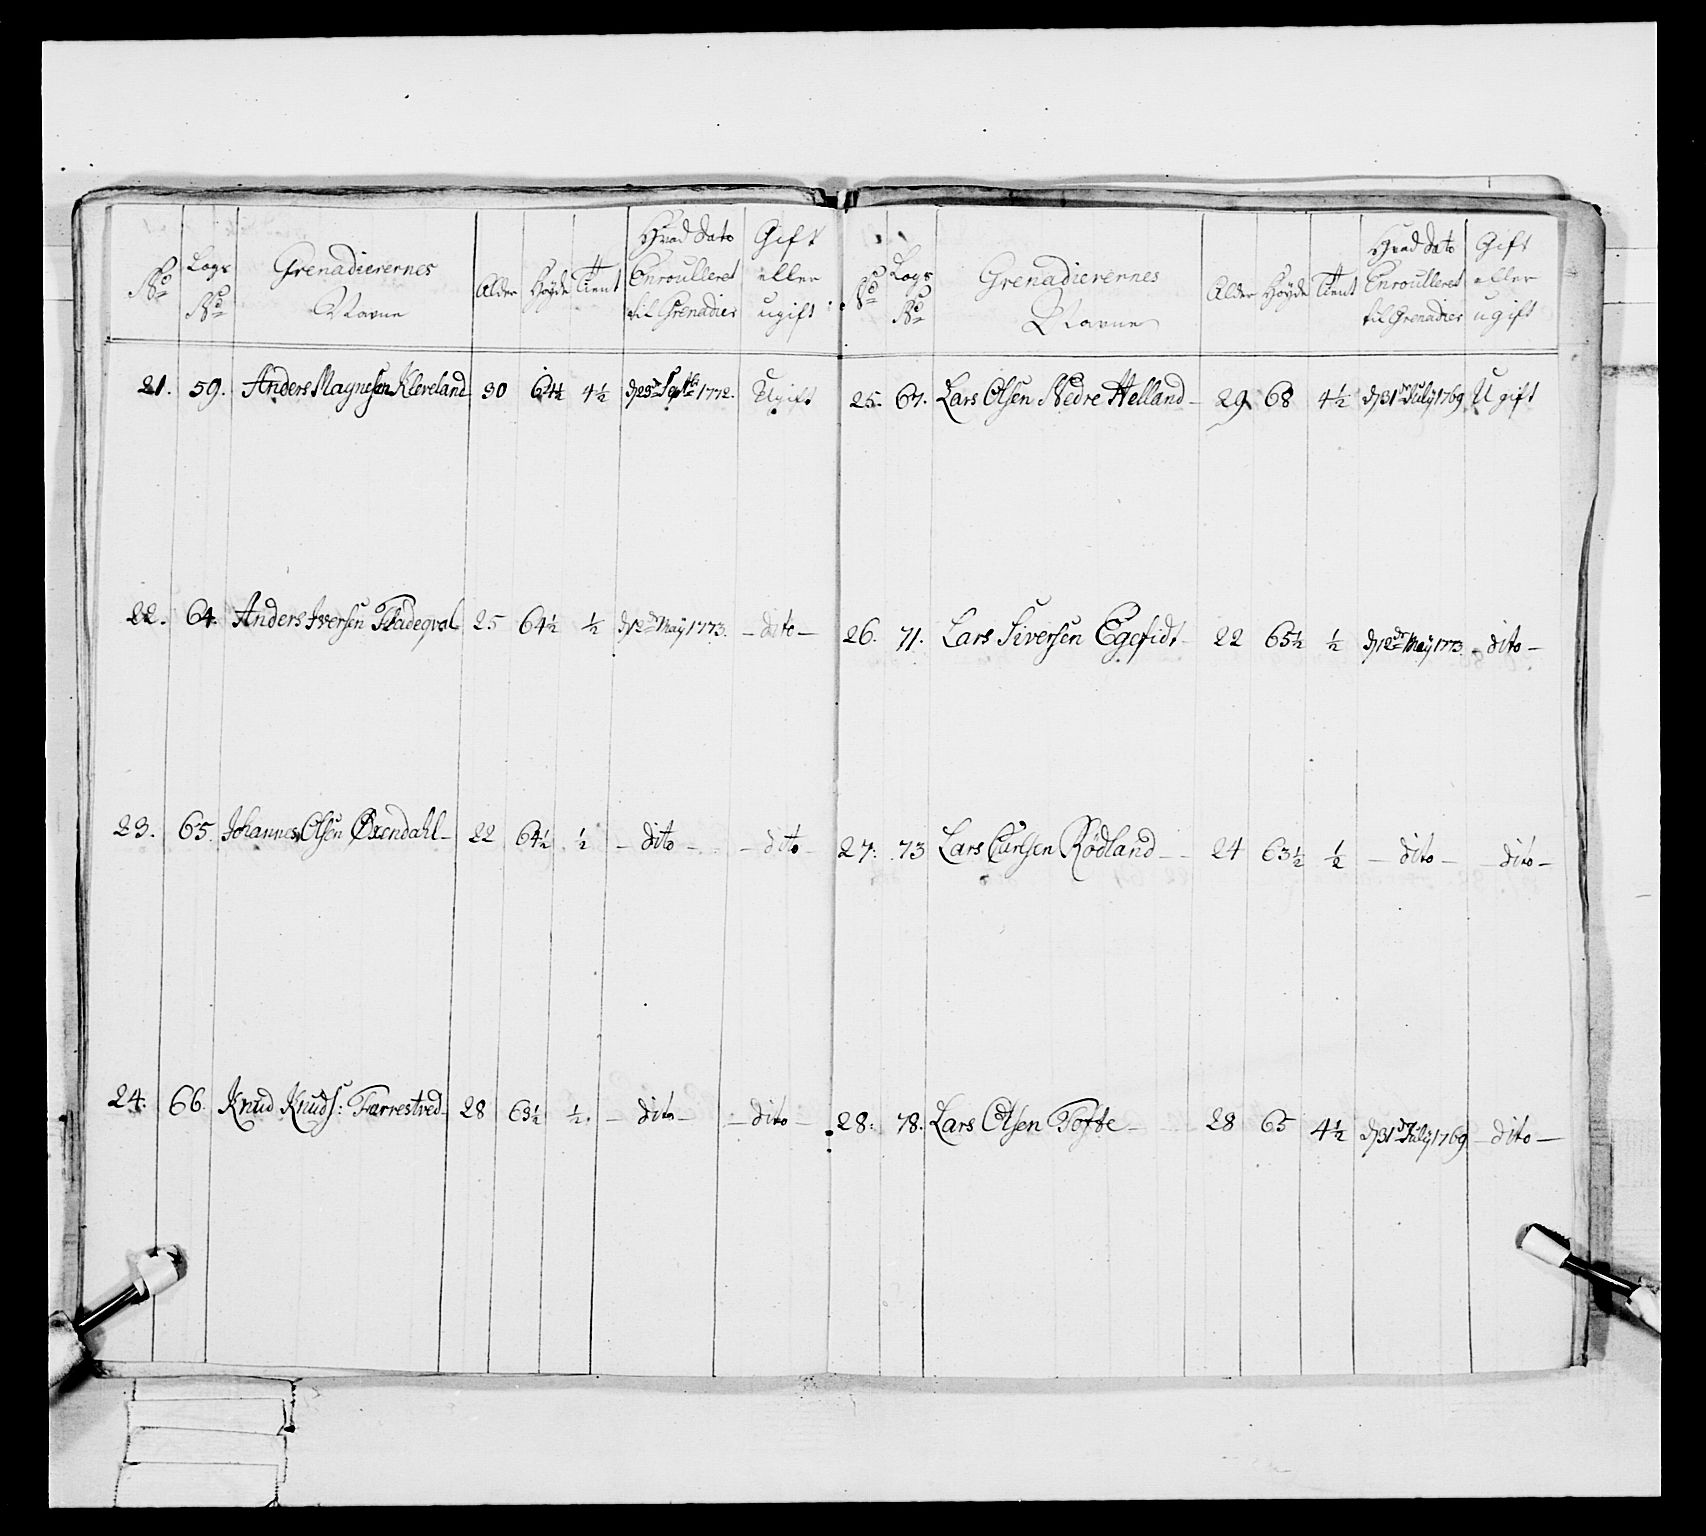 No Logs No Grenadierernes Navne Alder Høyde Tient Hvad Dato Enroulleret til Grenadier Gift eller ugift
21. 59. Anders Magnesen Kleveland 30 64½ 4½ d 23de Septbr 1772. Ugift
22. 64. Anders Iversen Fladeqval 25 64½ ½ d 12de May 1773. – dito –
23. 65. Johannes Olsen Øxendahl – 22 64½ ½ – dito – – dito –
24. 66. Knud Knuds: Farrestved – 28 63½ ½. – dito – – dito –
No Logs No Grenadierernes Navne Alder Høyde Tient Hvad Dato Enroulleret til Grenadier Gift eller ugift
25. 67. Lars Olsen Nedre Helland – 29 68 4½ d 31de July 1769 Ugift
26. 71. Lars Siversen Egefidt – 22 65½ ½ d 12de May 1773. – dito –
27. 73 Lars Carlsen Rødland – – 24 63½ ½ – dito – – dito –
28. 78. Lars Olsen Tofte – 28 65 4½ d 31de July 1769 – dito –